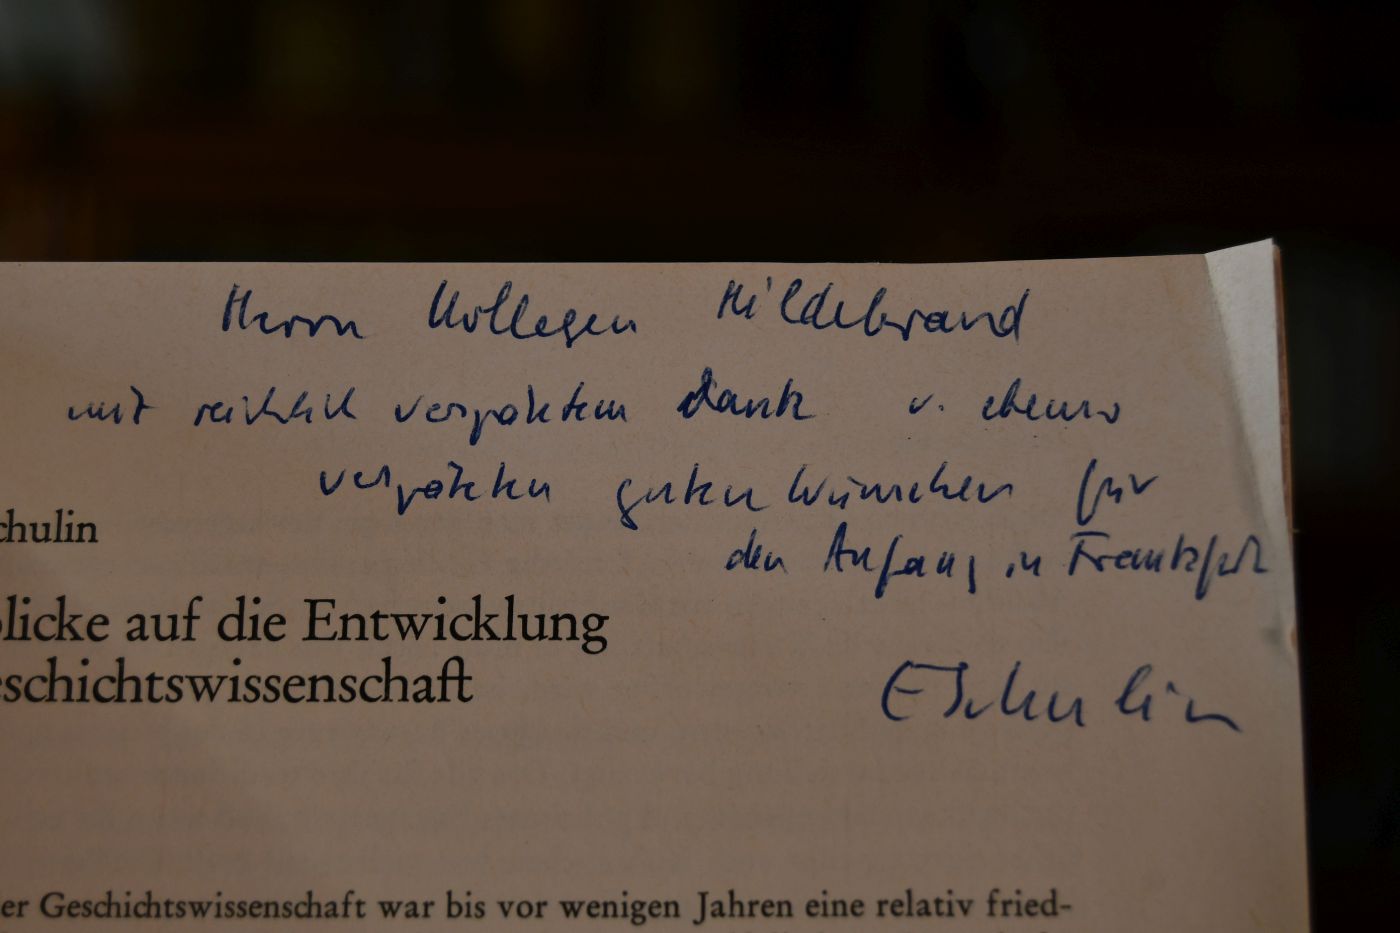 Herrn Kollegen Hildebrand
mit reichlich verspätetem Dank u. ebenso
verspäteten guten Wünschen für
den Anfang in Frankfurt
ESchulin
chulin
blicke auf die Entwicklung
eschichtswissenschaft
er Geschichtswissenschaft war bis vor wenigen Jahren eine relativ fried-